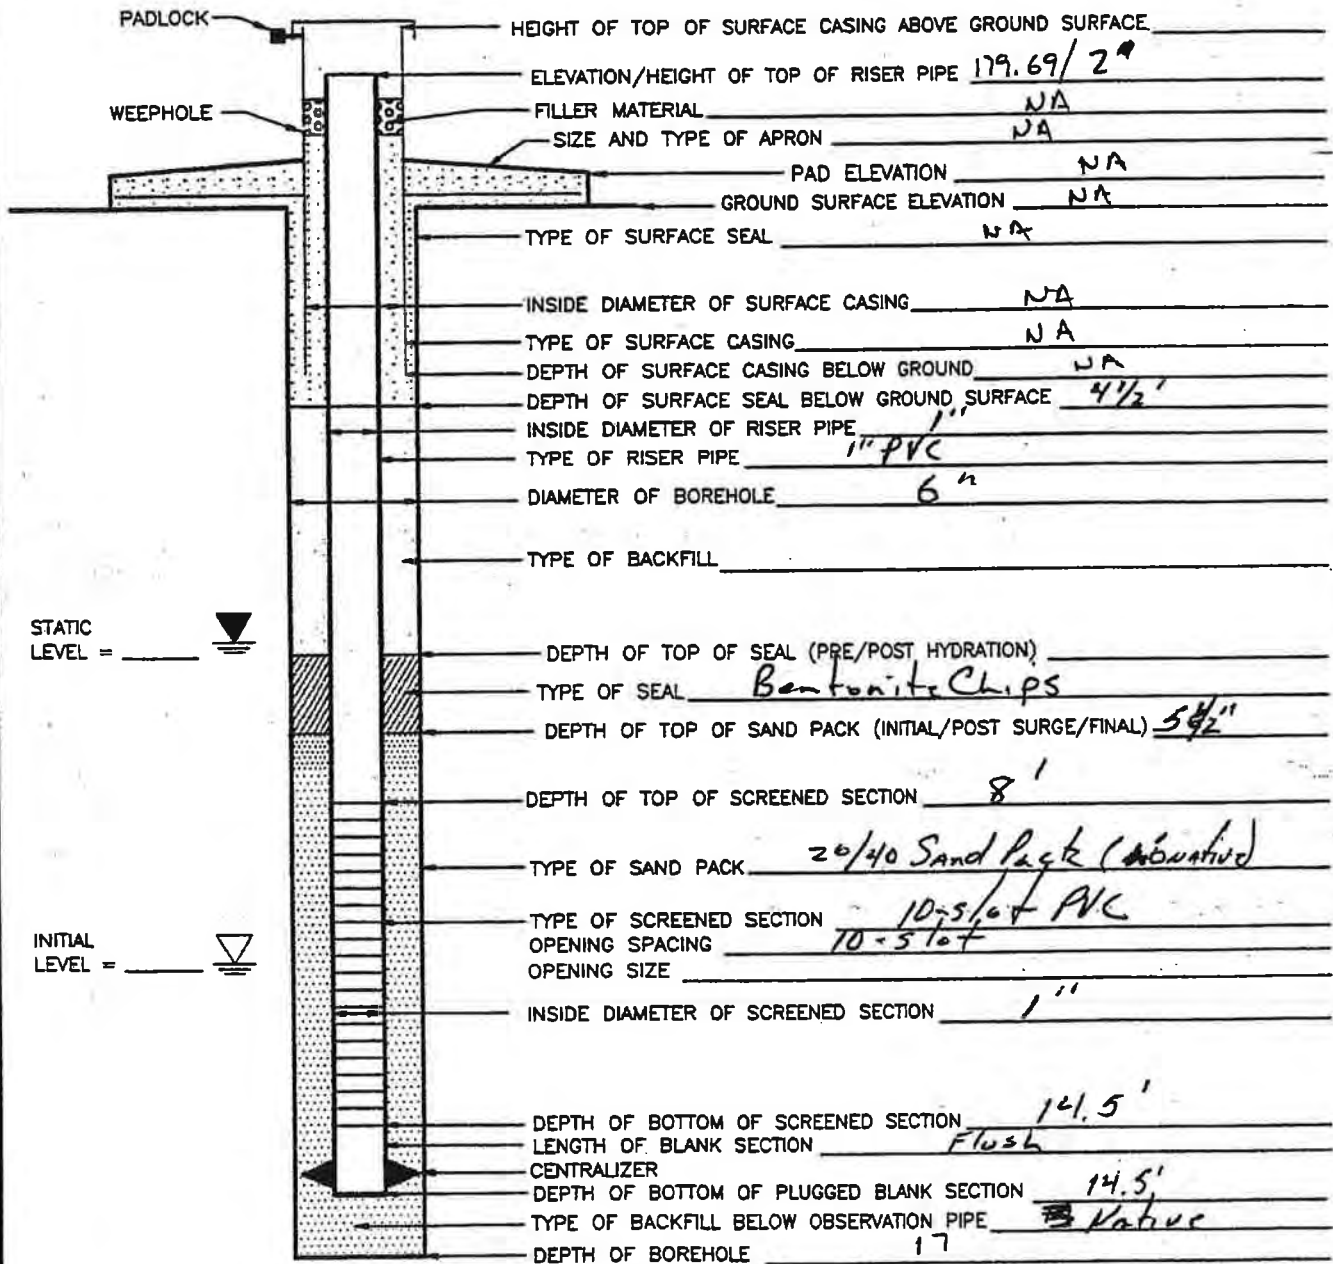 PADLOCK
HEIGHT OF TOP OF SURFACE CASING ABOVE GROUND SURFACE
ELEVATION/HEIGHT OF TOP OF RISER PIPE 179.69/ 2"
WEEPHOLE
FILLER MATERIAL NA
SIZE AND TYPE OF APRON NA
PAD ELEVATION NA
GROUND SURFACE ELEVATION NA
TYPE OF SURFACE SEAL NA
INSIDE DIAMETER OF SURFACE CASING NA
TYPE OF SURFACE CASING NA
DEPTH OF SURFACE CASING BELOW GROUND NA
DEPTH OF SURFACE SEAL BELOW GROUND SURFACE 4 1/2'
INSIDE DIAMETER OF RISER PIPE 1"
TYPE OF RISER PIPE 1" PVC
DIAMETER OF BOREHOLE 6"
TYPE OF BACKFILL
STATIC
LEVEL =
DEPTH OF TOP OF SEAL (PRE/POST HYDRATION)
TYPE OF SEAL Bentonite Chips
DEPTH OF TOP OF SAND PACK (INITIAL/POST SURGE/FINAL) 5 1/2"
DEPTH OF TOP OF SCREENED SECTION 8'
TYPE OF SAND PACK 20/40 Sand Pack (
TYPE OF SCREENED SECTION 10-slot PVC
OPENING SPACING 10-slot
OPENING SIZE
INITIAL
LEVEL =
INSIDE DIAMETER OF SCREENED SECTION 1"
DEPTH OF BOTTOM OF SCREENED SECTION 14.5'
LENGTH OF BLANK SECTION Flush
CENTRALIZER
DEPTH OF BOTTOM OF PLUGGED BLANK SECTION 14.5'
TYPE OF BACKFILL BELOW OBSERVATION PIPE Native
DEPTH OF BOREHOLE 17